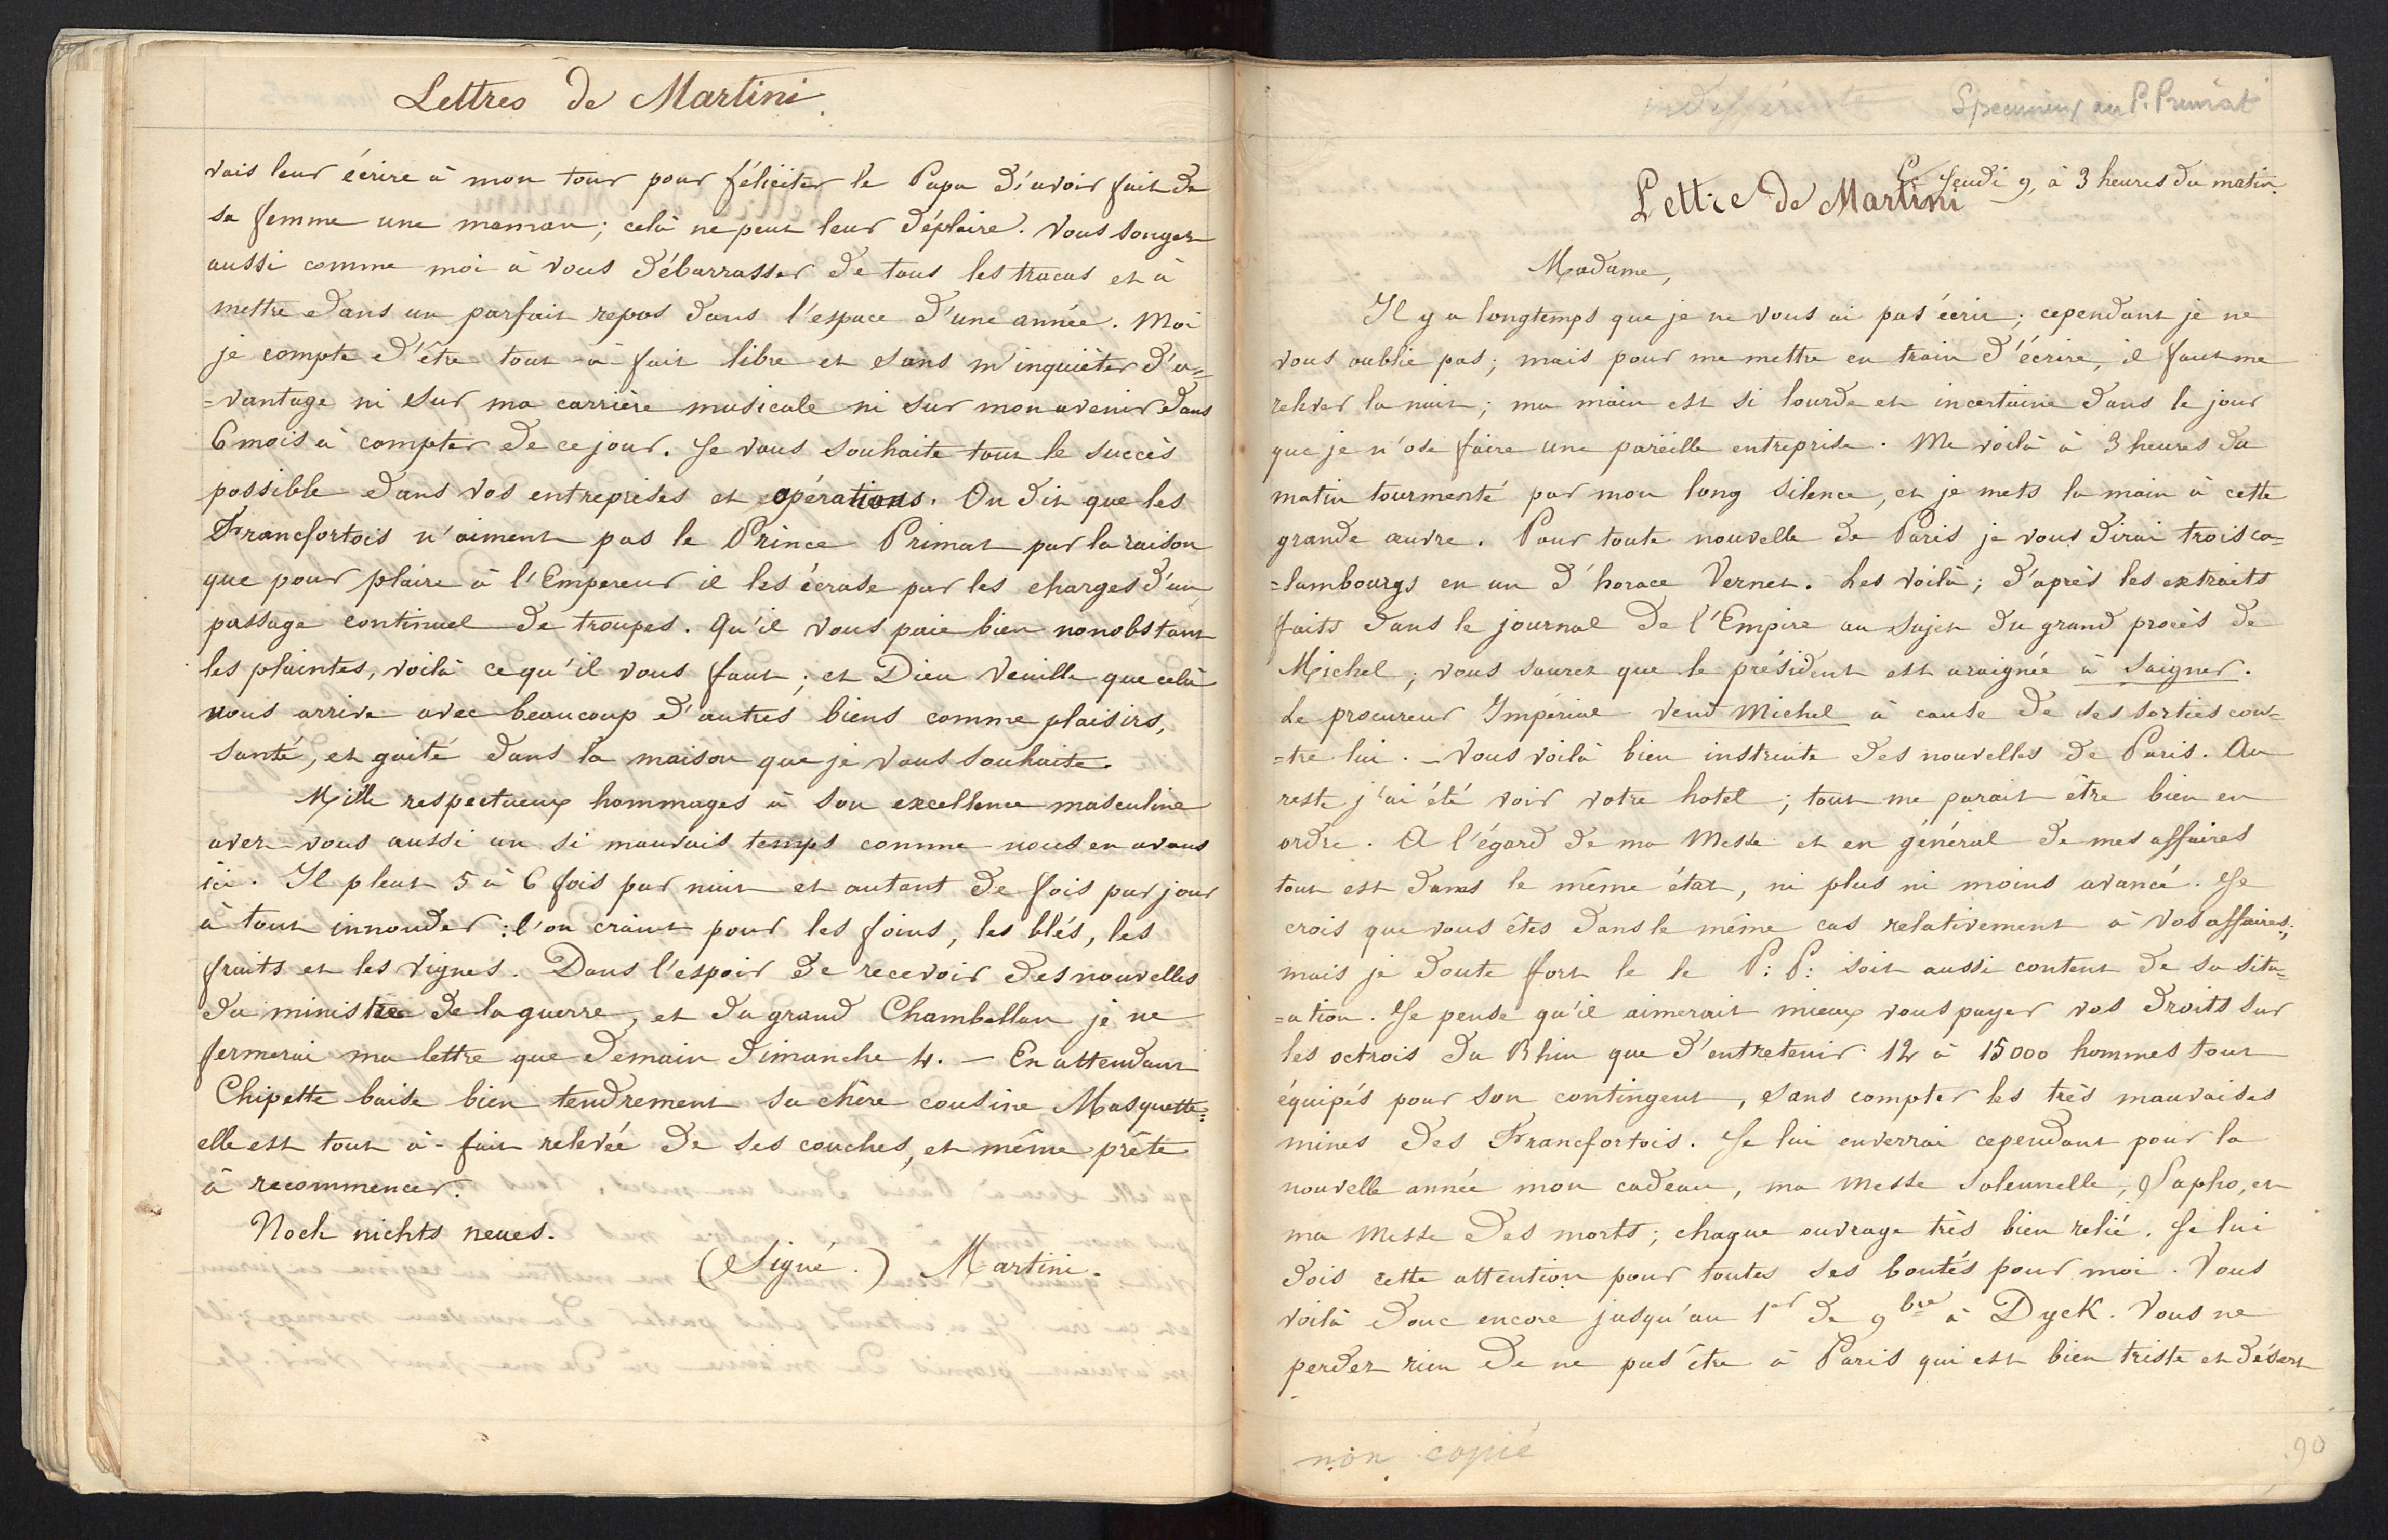 Lettres de Martini.
vais leur écrire à mon tour pour féliciter le Papa d'avoir fait de
sa femme une maman; celà ne peut leur déplaire. Vous songez
aussi comme moi à vous débarrasser de tous les tracas et à
mettre dans un parfait repos dans l'espace d'une année. Moi
je compte d'être tout-à-fait libre et sans m'inquiéter d'a=
=vantage ni sur ma carrière musicale ni sur mon avenir dans
6 mois à compter de ce jour. Je vous souhaite tout le succès
possible dans vos entreprises et opérations. On dit que les
Francfortois n'aiment pas le Prince Primat par la raison
que pour plaire à l'Empereur il les écrase par les charges d'un
passage continuel de troupes. Qu'il vous paie bien nonobstant
les plaintes, voilà ce qu'il vous faut; et Dieu veuille que celà
vous arrive avec beaucoup d'autres biens comme plaisirs,
santé, et gaité dans la maison que je vous souhaite.
Mille respectueux hommages à son excellence masculine
avez-vous aussi un si mauvais temps comme nous en avons
ici. Il pleut 5 à 6 fois par nuit et autant de fois par jour
à tout innonder: l'on craint pour les foins, les blés, les
fruits et les vignes. Dans l'espoir de recevoir des nouvelles
du ministre de la guerre, et du grand Chambellan je ne
fermerai ma lettre que demain dimanche 4. — En attendant
Chipette baise bien tendrement sa chère cousine Masquette:
elle est tout à-fait relevée de ses couches, et même prête
à recommencer.
Noch nichts neues.
(Signé.) Martini.
indifférente Specimen au P. Primat
Ce Jeudi 9, à 3 heures du matin.
Lettre de Martini
Madame,
Il y a longtemps que je ne vous ai pas écrit; cependant je ne
vous oublie pas; mais pour me mettre en train d'écrire, il faut me
relever la nuit; ma main est si lourde et incertaine dans le jour
que je n'ose faire une pareille entreprise. Me voilà à 3 heures du
matin tourmenté par mon long silence, et je mets la main à cette
grande œuvre. Pour toute nouvelle de Paris je vous dirai trois ca=
=lambourgs en un d'horace Vernet. Les voilà; d'après les extraits
faits dans le journal de l'Empire au sujet du grand procès de
Michel; vous saurez que le président est araignée à saigner.
Le procureur Impérial vend Michel à cause de ses sorties con=
=tre lui. — Vous voilà bien instruite des nouvelles de Paris. Au
reste j'ai été voir votre hotel; tout me parait être bien en
ordre. A l'égard de ma Messe et en général de mes affaires
tout est dans le même état, ni plus ni moins avancé. Je
crois que vous êtes dans le même cas relativement à vos affaires;
mais je doute fort le le P: P: soit aussi content de sa situ=
=ation. Je pense qu'il aimerait mieux vous payer vos droits sur
les octrois du Rhin que d'entretenir 12 à 15000 hommes tout
équipés pour son contingent, sans compter les très mauvaises
mines des Francfortois. Je lui enverrai cependant pour la
nouvelle année mon cadeau, ma Messe solennelle, Sapho, et
ma Messe des morts; chaque ouvrage très bien relié. Je lui
dois cette attention pour toutes ses bontés pour moi. Vous
voilà donc encore jusqu'au 1er de 9bre à Dyck. Vous ne
perdez rien de ne pas être à Paris qui est bien triste et désert
non copié
90